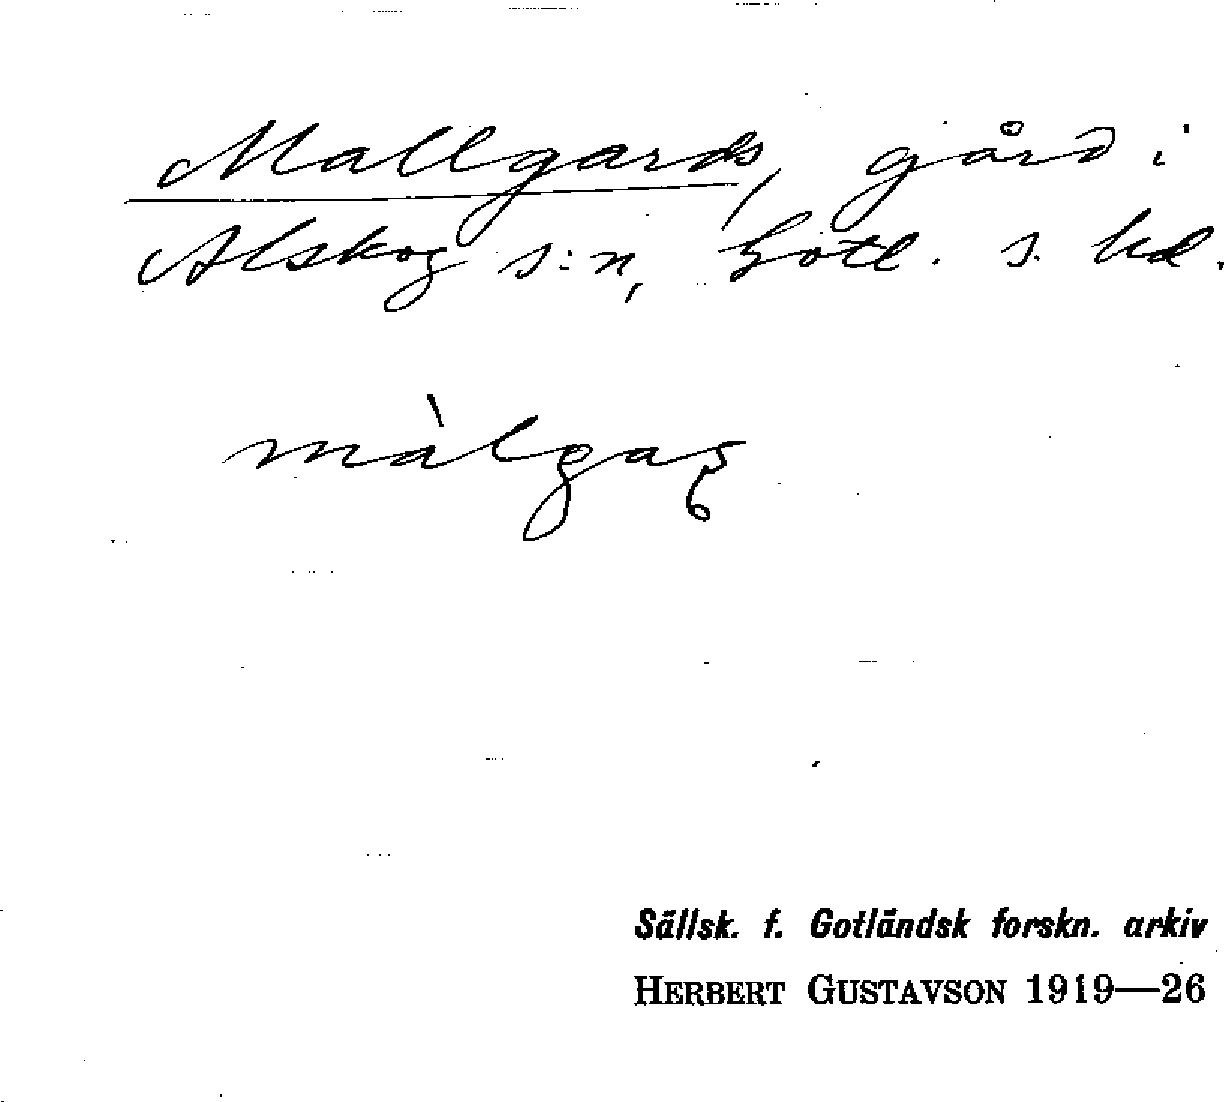 Mallgards, gård i
Alskog s:n, Gotl. s. hd.
màlgaʂ
Sällsk. f. Gotländsk forskn. arkiv
HERBERT GUSTAVSON 1919—26